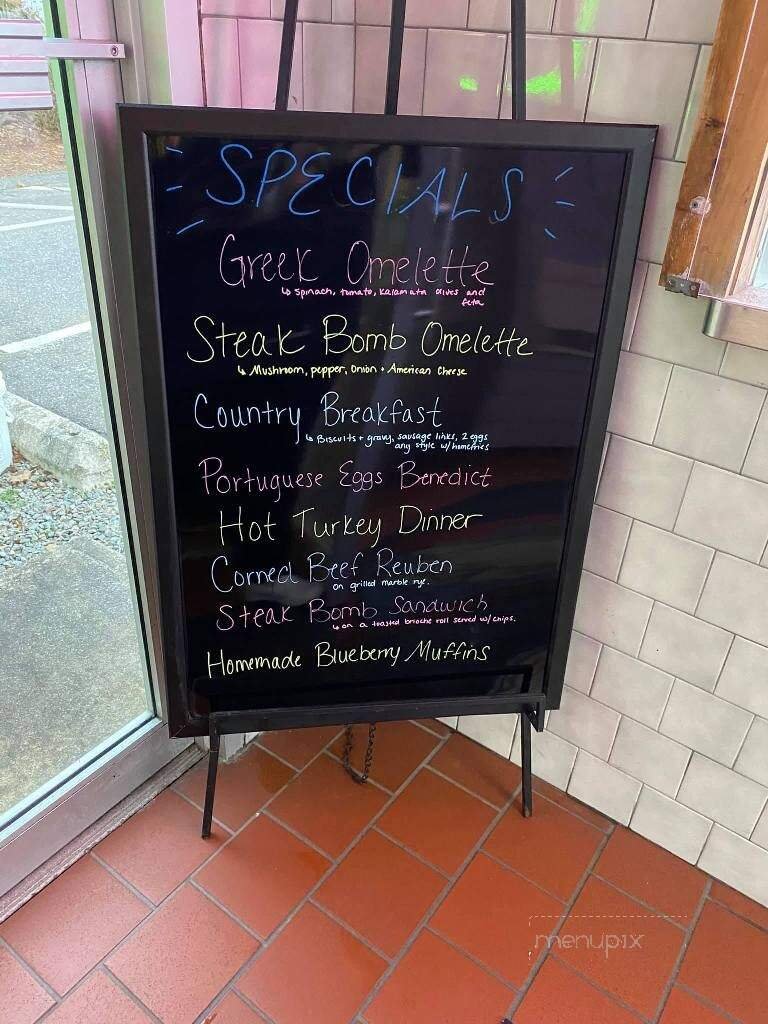 SPECIALS
Greek Omelette
↳ spinach, tomato, kalamata olives and
feta
Steak Bomb Omelette
↳ Mushroom, pepper, onion + American Cheese
Country Breakfast
↳ Biscuits + gravy, sausage links, 2 eggs
any style w/ homefries
Portuguese Eggs Benedict
Hot Turkey Dinner
Corned Beef Reuben
on grilled marble rye.
Steak Bomb Sandwich
↳ on a toasted brioche roll served w/ chips.
Homemade Blueberry Muffins
menupix